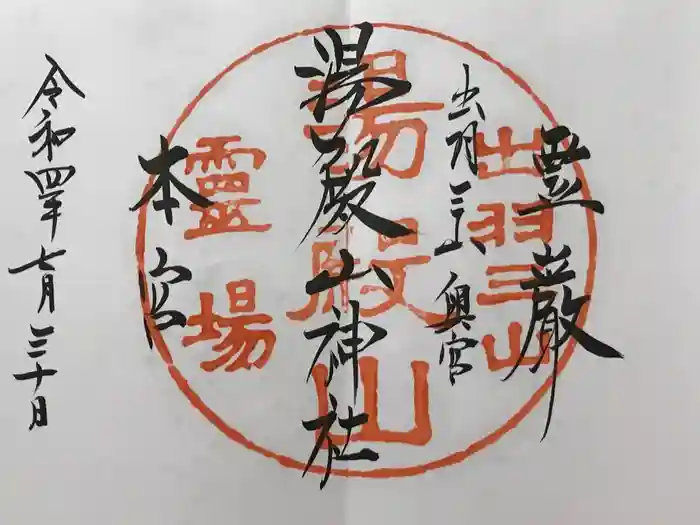 出羽三山 奥宮
湯殿山神社
本宮
令和四年七月三十日
出羽三山
湯殿山
靈場